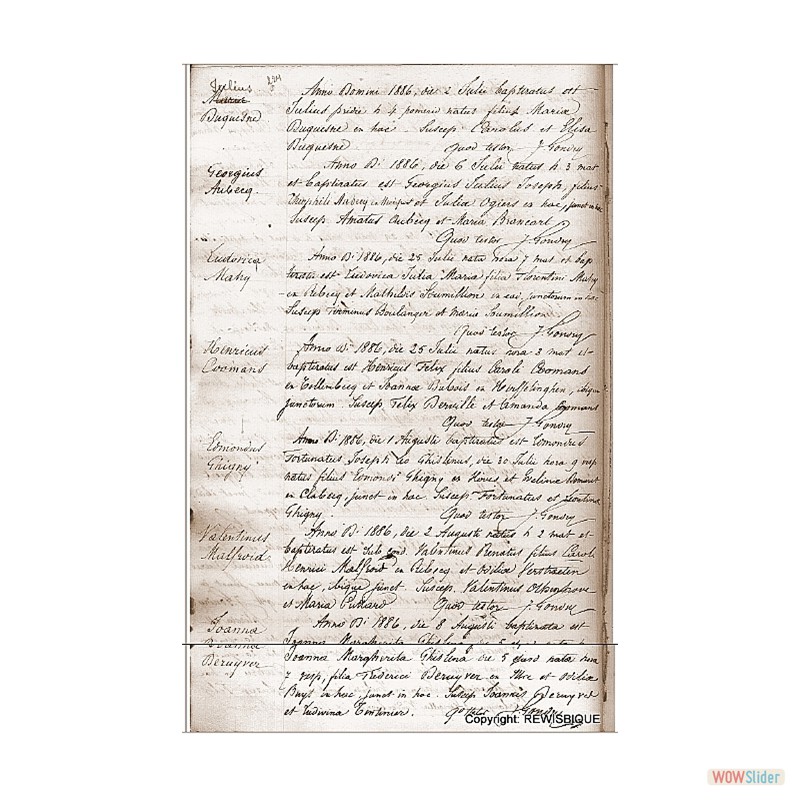 Julius
Duquesne
Anno Domini 1886, die 2 Julii baptizatus est
Julius pridie h 4 pomeri natus filius Maria
Duquesne en hac. Suscep. Carolus et Elisa
Duquesne Quod testor J Gondry
Georgius
Aubecq.
Anno D: 1886, die 6 Julii natus h 3 mat
et baptizatus est Georgius Julius Joseph, filius
et Julia Ogiers en hac, junct in hac
Suscep. Amatus Aubecq et Maria Brancart
Quod testor J Gondry
Ludovica
Mahy
Anno D: 1886, die 25 Julii nata hora 7 mat et bap
tizata est Ludovica Julia Maria filia Florentini Mahy
en Rebecq et Mathildis Soumillion en ead, junctorum in hac
Suscep Firminus Boulanger et Maria Soumillion
Quod testor J Gondry
Henricus
Coomans
Anno D: 1886, die 25 Julii natus hora 3 mat et
baptizatus est Henricus Felix filius Caroli Coomans
en Tollembecq et Joannae Dubois en Herffelinghen, ibique
junctorum Suscep Felix Derville et Amanda Coomans
Quod testor J Gondry
Edmondus
Ghigny
Anno D: 1886, die 1 Augusti baptizatus est Edmondus
Fortunatus Joseph Leo Ghislenus, die 30 Julii hora 9 vesp
natus filius Edmondi Ghigny en Hoves, et
en Clabecq, junct in hac. Suscep. Fortunatus et Leontina
Ghigny. Quod testor J Gondry
Valentinus
Malfroid
Anno D: 1886, die 2 Augusti natus h 2 mat et
baptizatus est sub cond. Valentinus Renatus filius Caroli
Henrici Malfroid en Rebecq et Odilia Verstraeten
en hac, ibique junct. Suscep. Valentinus
et Maria Quod testor J Gondry
Joanna
Deruyver
Anno D: 1886, die 8 Augusti baptizata est
Joanna Margherita Ghislena die 5 quod nata hora
7 vesp, filia Frederici Deruyver en et Odilia
Buys in hac, junct in hac. Suscep Joannes Deruyver
et Ludivina
Copyright: REWISBIQUE
WOWSlider